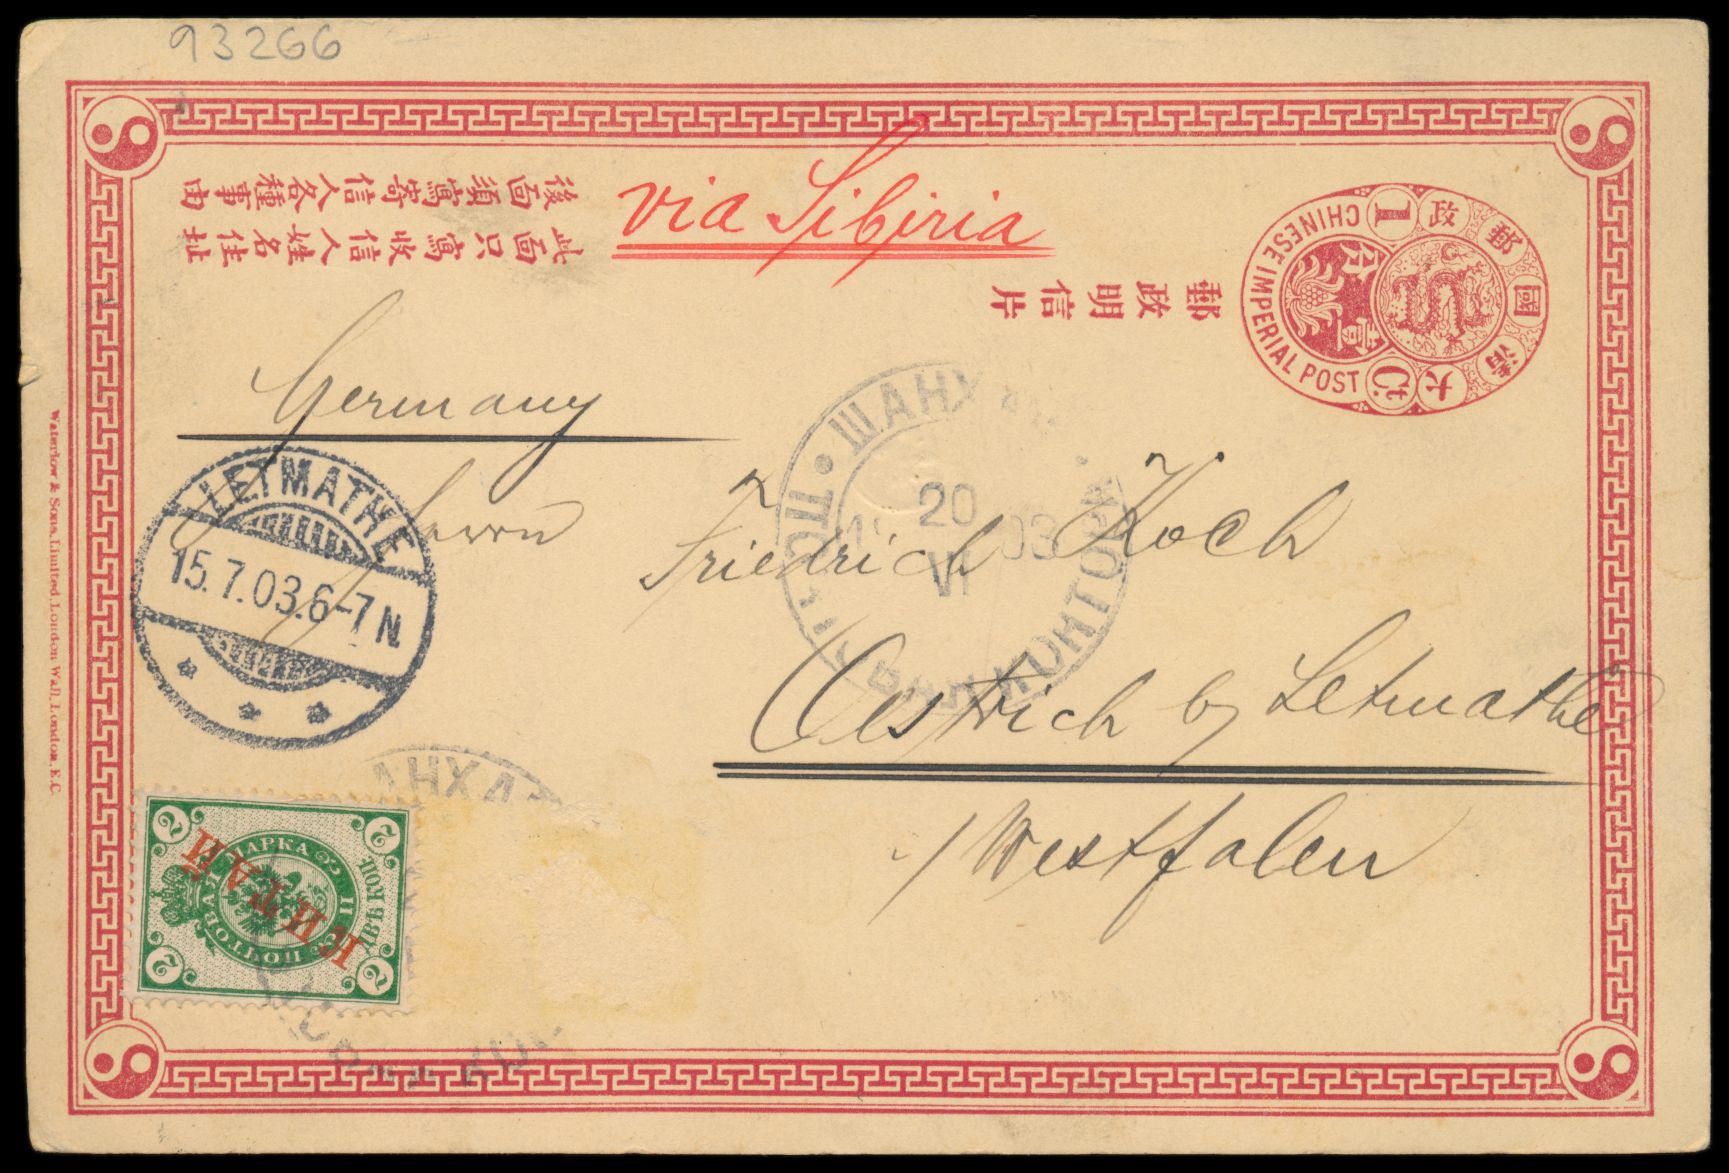 93266
後面須寫寄信人各種事由
此面只寫收信人姓名住址
via Sibiria
郵政明信片
大清國郵政
1
Ct
壹分
CHINESE IMPERIAL POST
Germany
Herrn
Friedrich Koch
Oestrich by Letmathe
/Westfalen
LETMATHE
15.7.03.6-7N
ШАНХА
ПОЧТ
КОНТОРА
20
VI
03
АНХА
КОН
2
2
2
2
ПОЧТОВАЯ МАРКА
ДВѢ КОП.
КИТАЙ
Waterlow & Sons, Limited, London Wall, London, E.C.